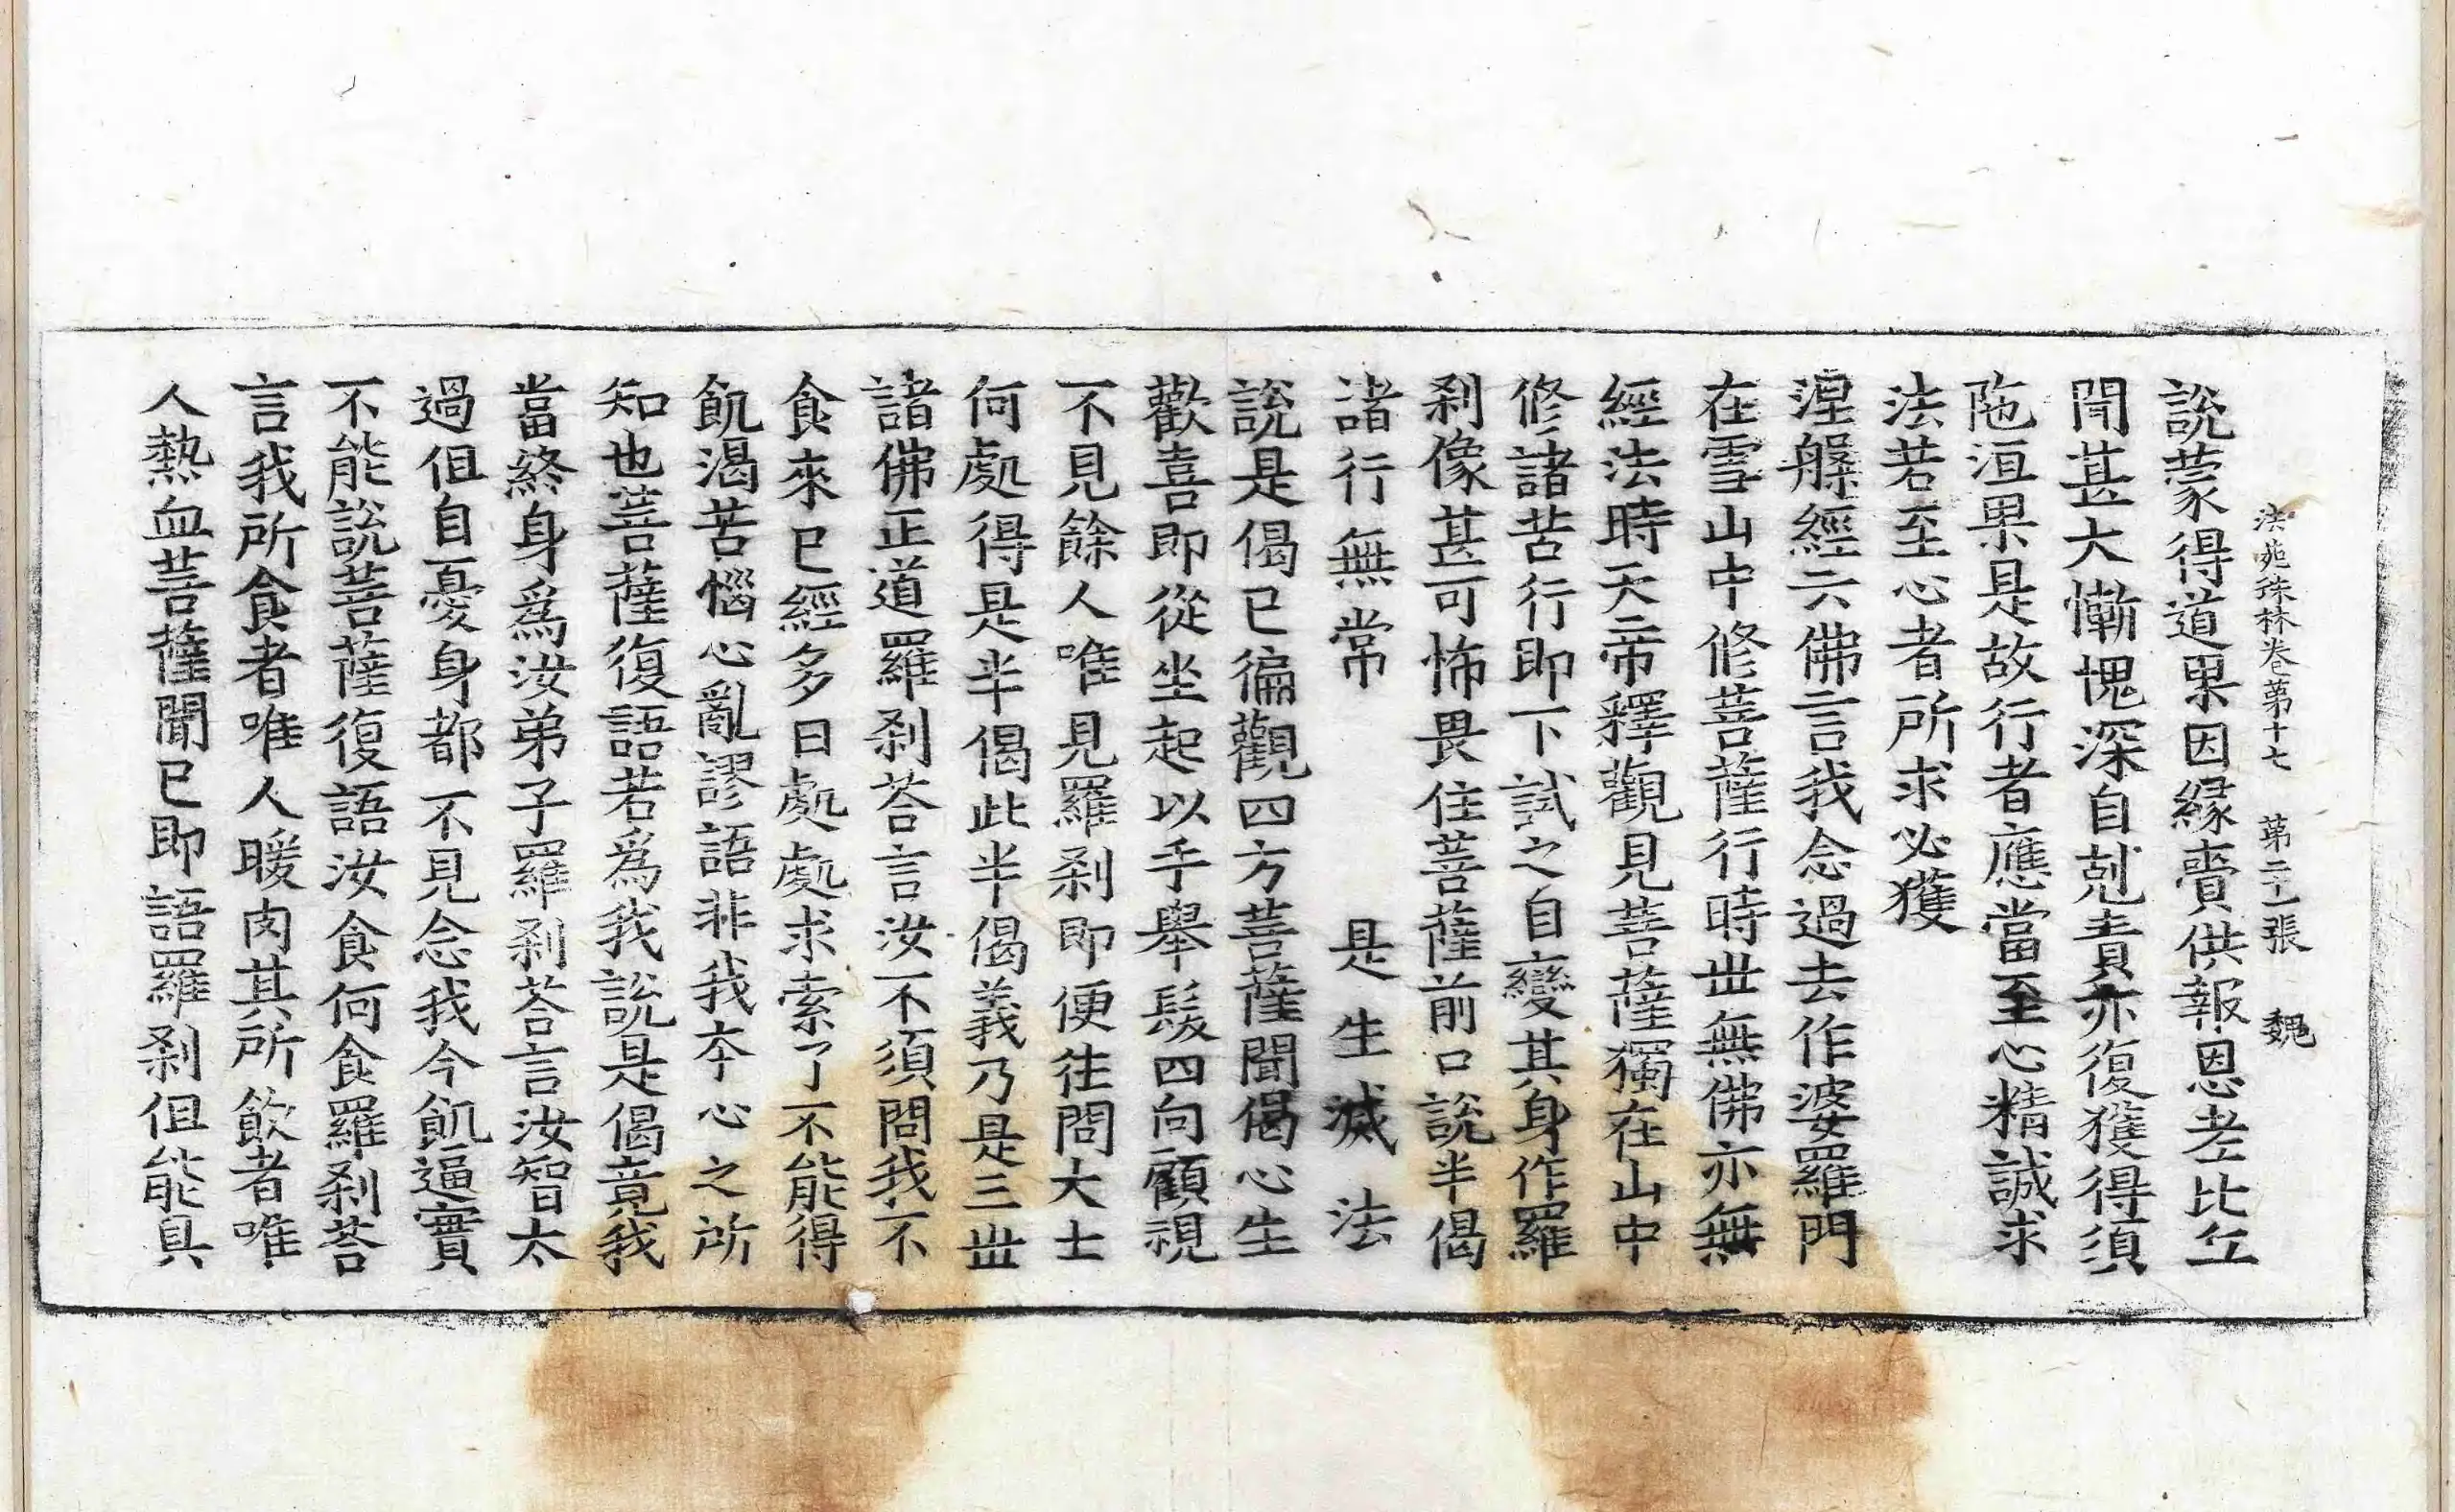 法苑珠林卷第十七 第二十一張 魏
說蒙得道果因緣賷供報恩老比丘
聞甚大慚愧深自剋責亦復獲得須
陁洹果是故行者應當至心精誠求
法若至心者所求必獲
涅槃經云佛言我念過去作婆羅門
在雪山中修菩薩行時丗無佛亦無
經法時天帝釋觀見菩薩獨在山中
修諸苦行即下試之自變其身作羅
剎像甚可怖畏住菩薩前口說半偈
諸行無常 是生滅法
說是偈已徧觀四方菩薩聞偈心生
歡喜即從坐起以手舉髮四向顧視
不見餘人唯見羅剎即便往問大士
何處得是半偈此半偈義乃是三丗
諸佛正道羅剎荅言汝不須問我不
食來已經多日處處求索了不能得
飢渴苦惱心亂謬語非我本心之所
知也菩薩復語若爲我說是偈竟我
當終身爲汝弟子羅剎荅言汝智太
過但自憂身都不見念我今飢逼實
不能說菩薩復語汝食何食羅剎荅
言我所食者唯人暖肉其所飲者唯
人熱血菩薩聞已即語羅剎但能具